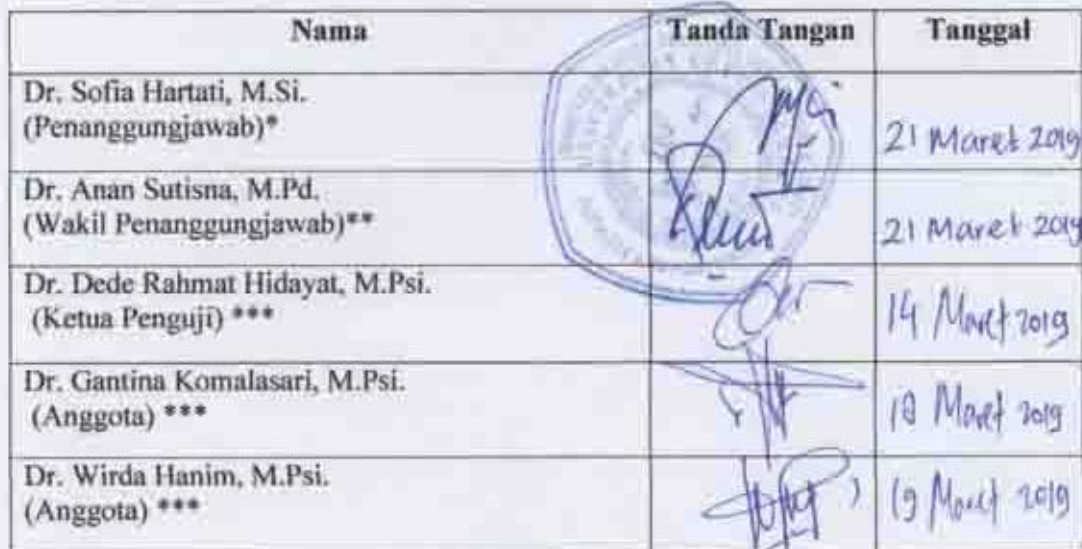 Nama Tanda Tangan Tanggal
Dr. Sofia Hartati, M.Si.
(Penanggungjawab)* 21 Maret 2019
Dr. Anan Sutisna, M.Pd.
(Wakil Penanggungjawab)** 21 Maret 2019
Dr. Dede Rahmat Hidayat, M.Psi.
(Ketua Penguji) *** 14 Maret 2019
Dr. Gantina Komalasari, M.Psi.
(Anggota) *** Maret 2019
Dr. Wirda Hanim, M.Psi.
(Anggota) *** 19 Maret 2019